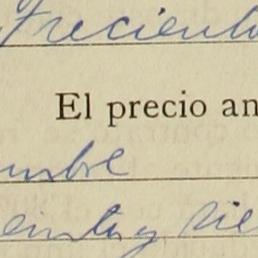 Trecient
El precio an
umbre
einta y sie